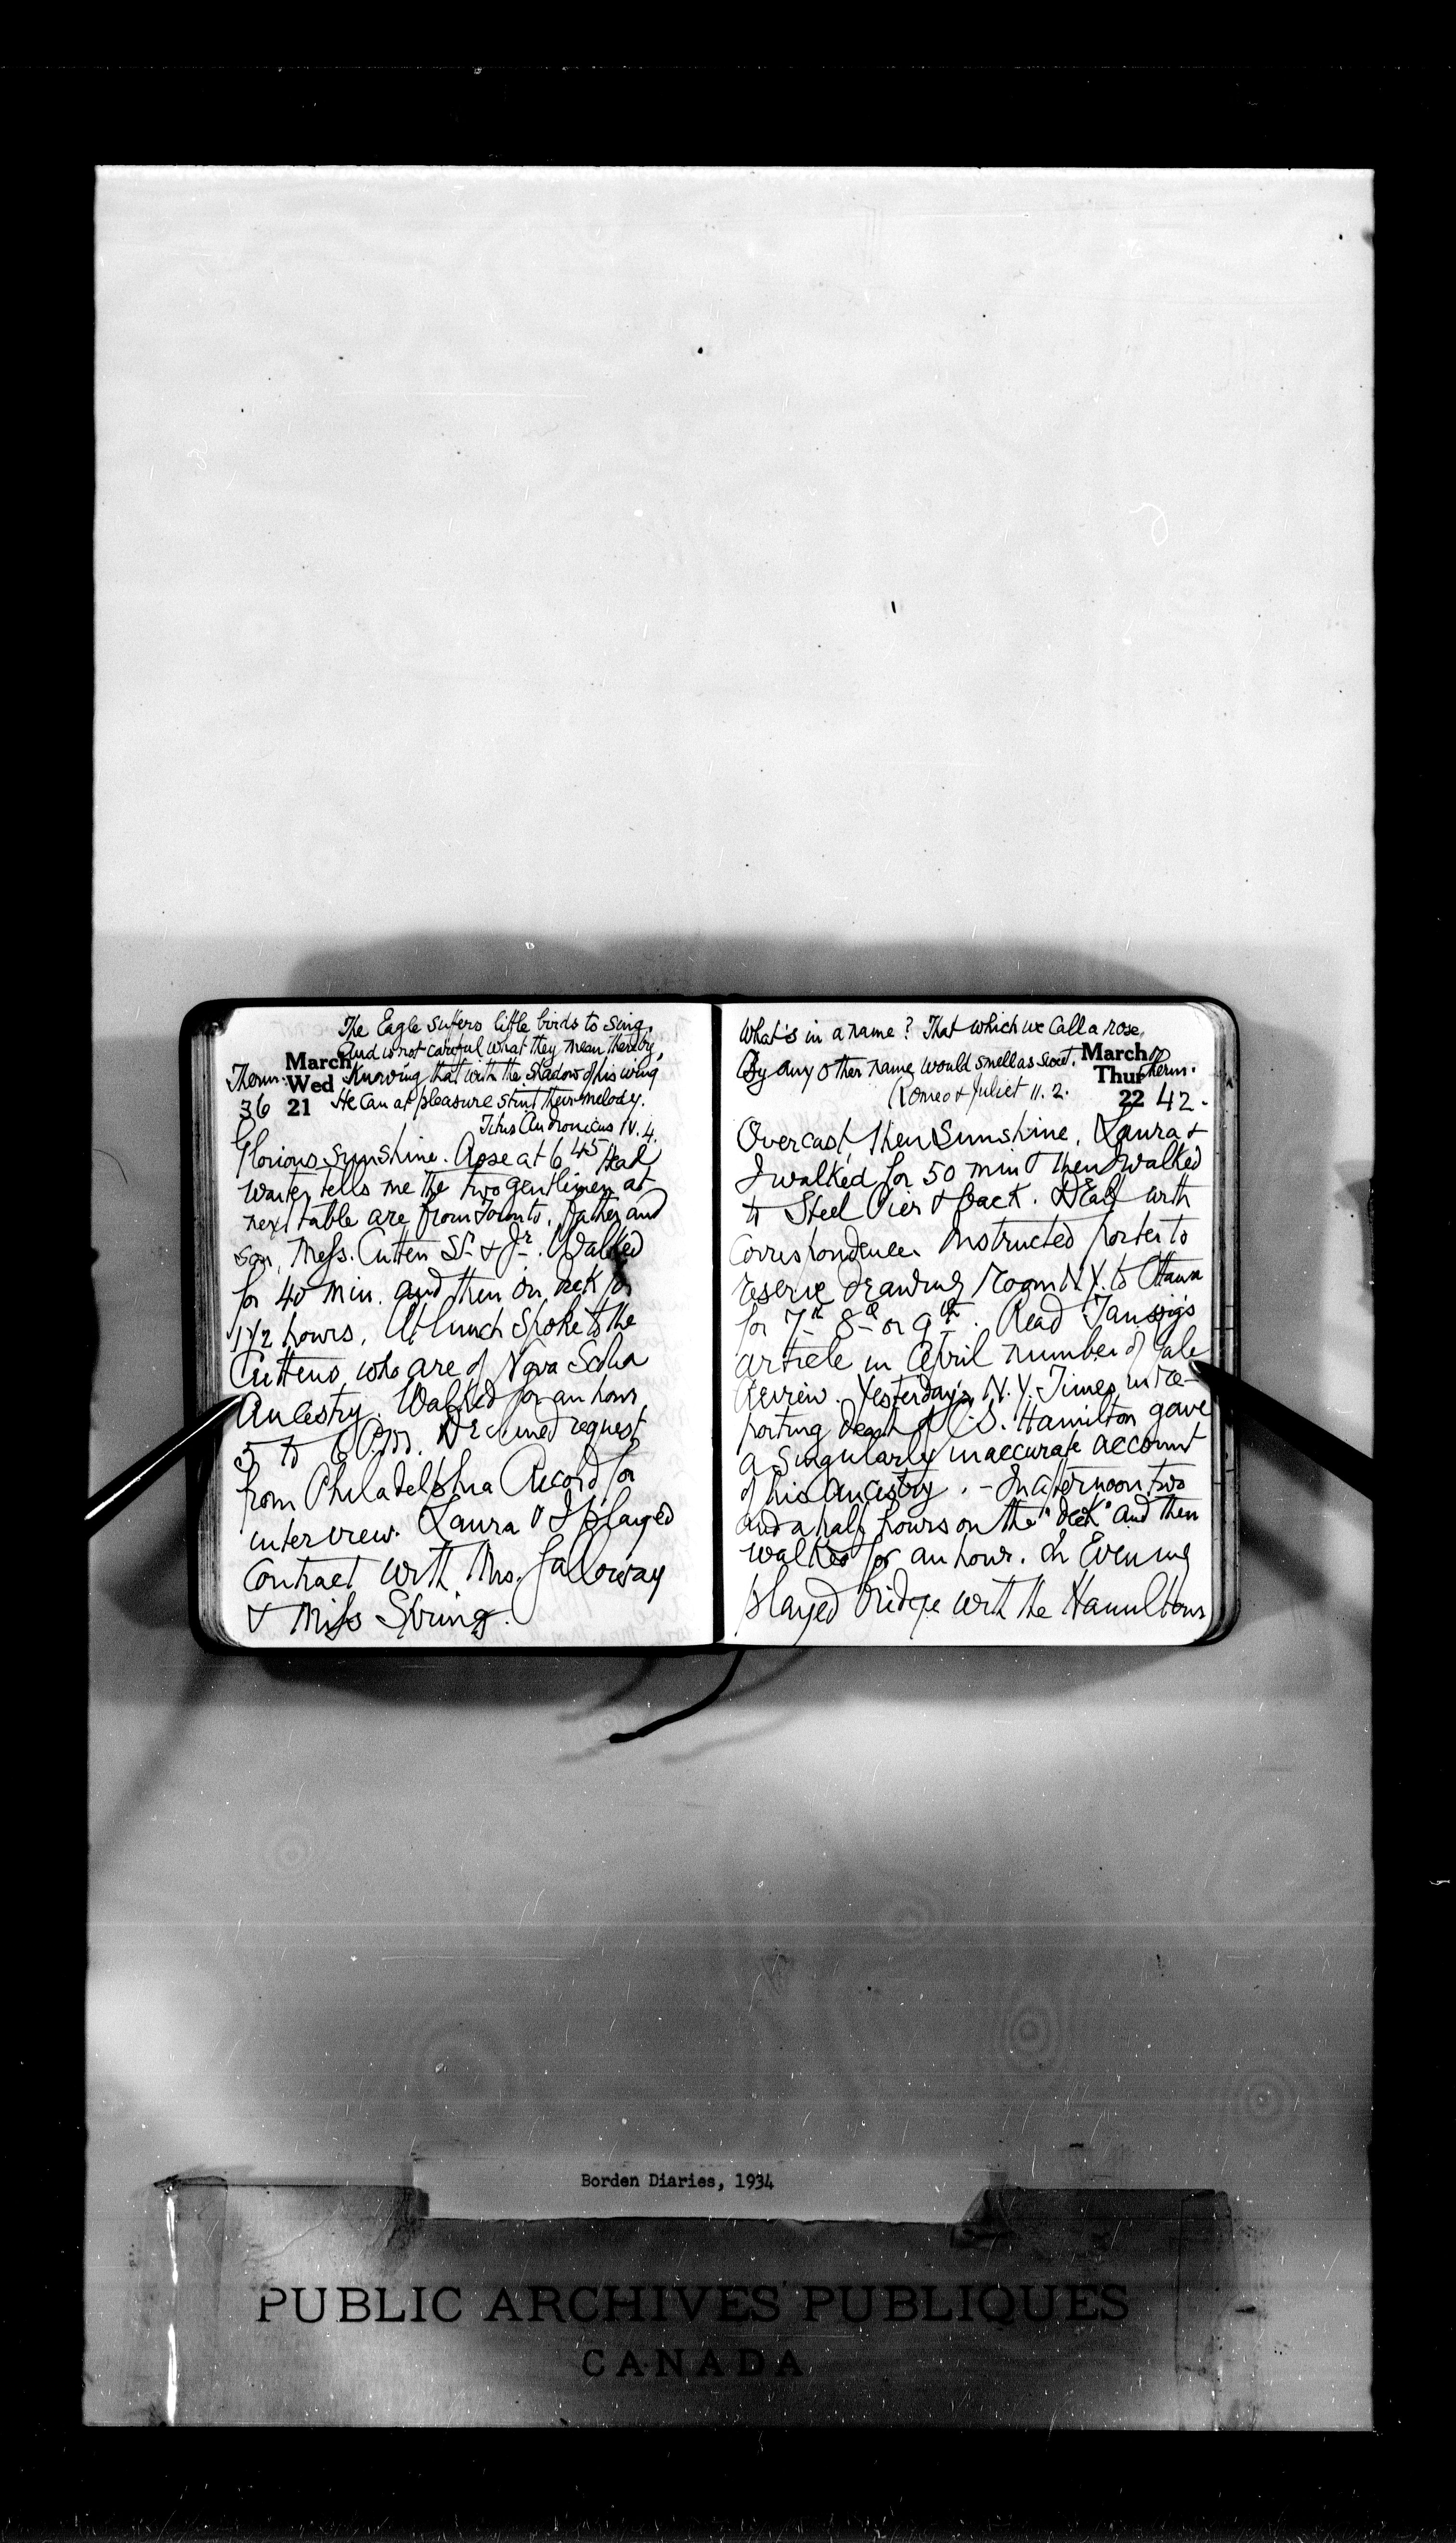 The Eagle suffers little birds to sing,
And is not careful what they mean thereby,
Knowing that with the shadow of his wing
He can at pleasure stint their melody.
Titus Andronicus IV. 4.
Therm.
36
March
Wed
21
Glorious sunshine. Arose at 6 45 Head
waiter tells me the two gentlemen at
next table are from Toronto, father and
son, Mess. Cutten Sr. & Jr. Walked
for 40 min. and then on deck for
1 1/2 hours. At lunch spoke to the
Cuttens who are of Nova Scotia
Ancestry. Walked for an hour
5 to 6 P.M. Declined request
from Philadelphia Record for
interview. Laura & I played
Contract with Mrs. Galloway
& Miss Spring.
What's in a name? That which we call a rose
By any other name would smell as sweet.
Romeo & Juliet II. 2.
March
Thur
22
Therm.
42.
Overcast, then Sunshine. Laura &
I walked for 50 min & then I walked
to Steel Pier & back. Dealt with
correspondence. Instructed porter to
reserve drawing room N.Y. to Ottawa
for 7th 8th or 9th. Read Taussig's
article in April number of Yale
Review. Yesterday's N.Y. Times in re-
porting death of C.S. Hamilton gave
a singularly inaccurate account
of his ancestry. - In afternoon two
and a half hours on the "deck" and then
walked for an hour. In Evening
played bridge with the Hamiltons
Borden Diaries, 1934
PUBLIC ARCHIVES PUBLIQUES
CANADA